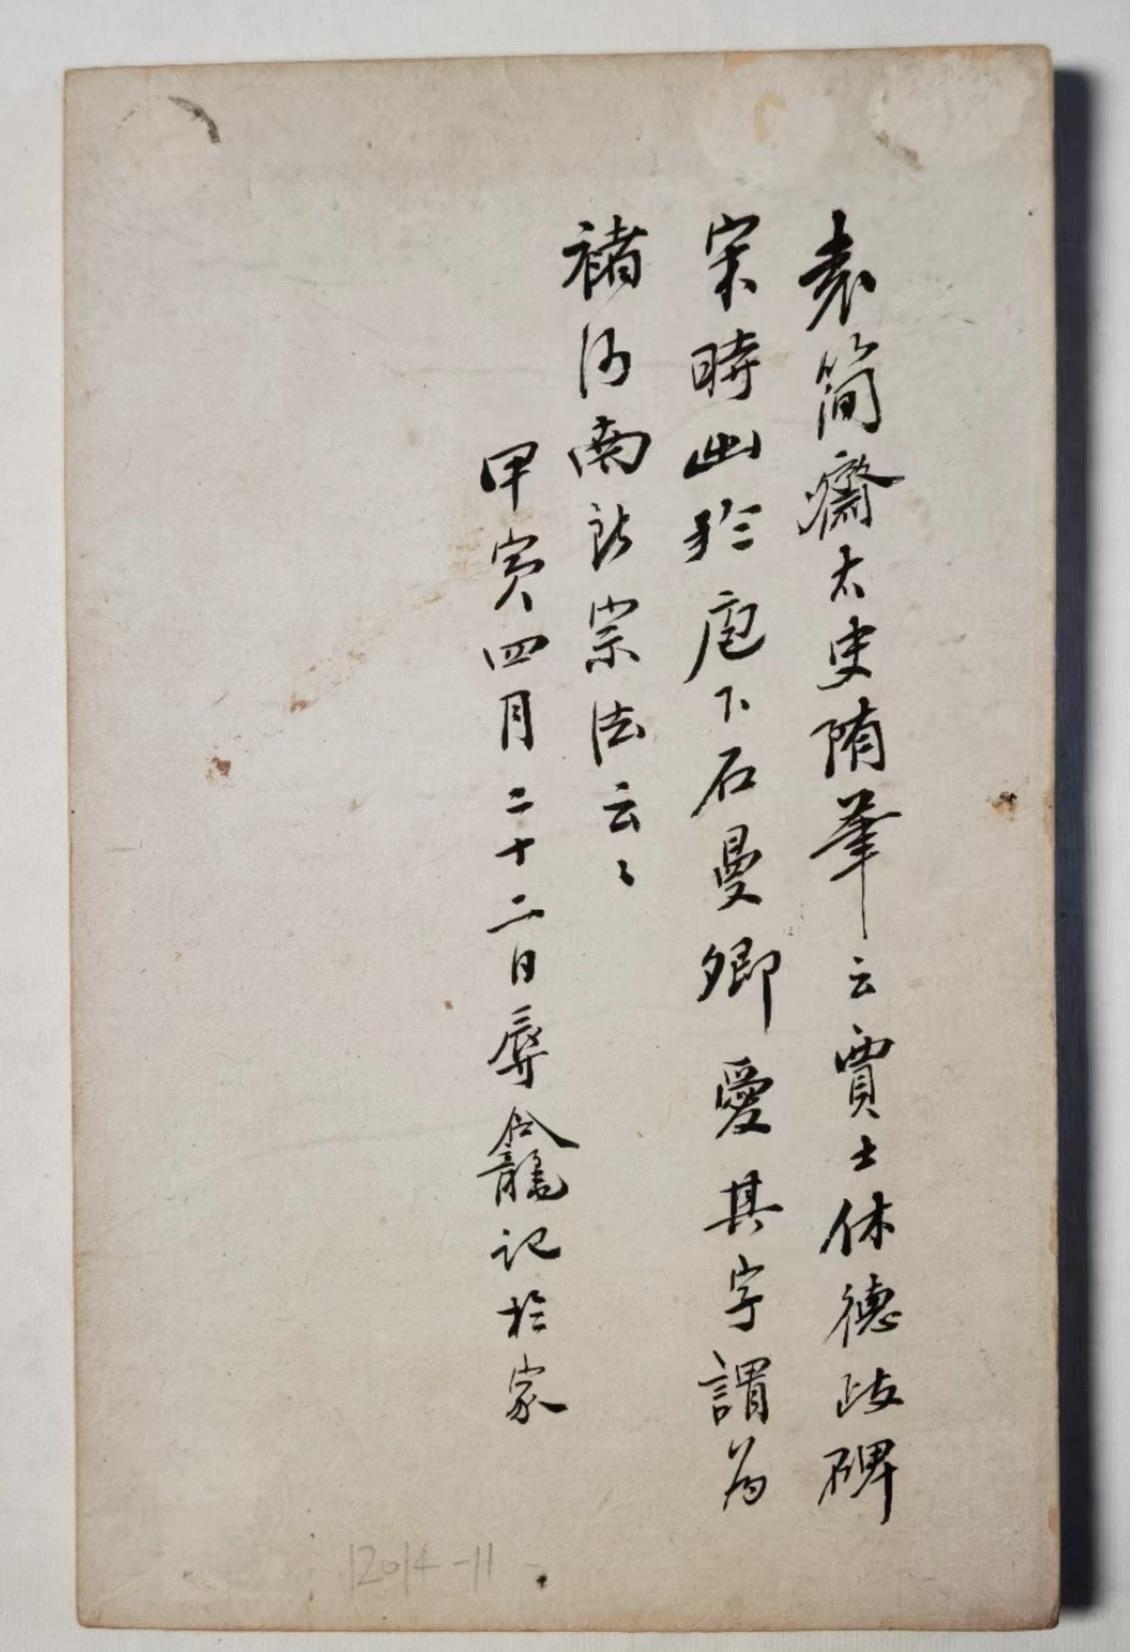 袁簡齋太史陏筆云賈士休德政碑
宋時出於庖下石曼卿愛其字謂為
褚河南所宗法云〻
甲寅四月二十二日龕記於家
12014-11